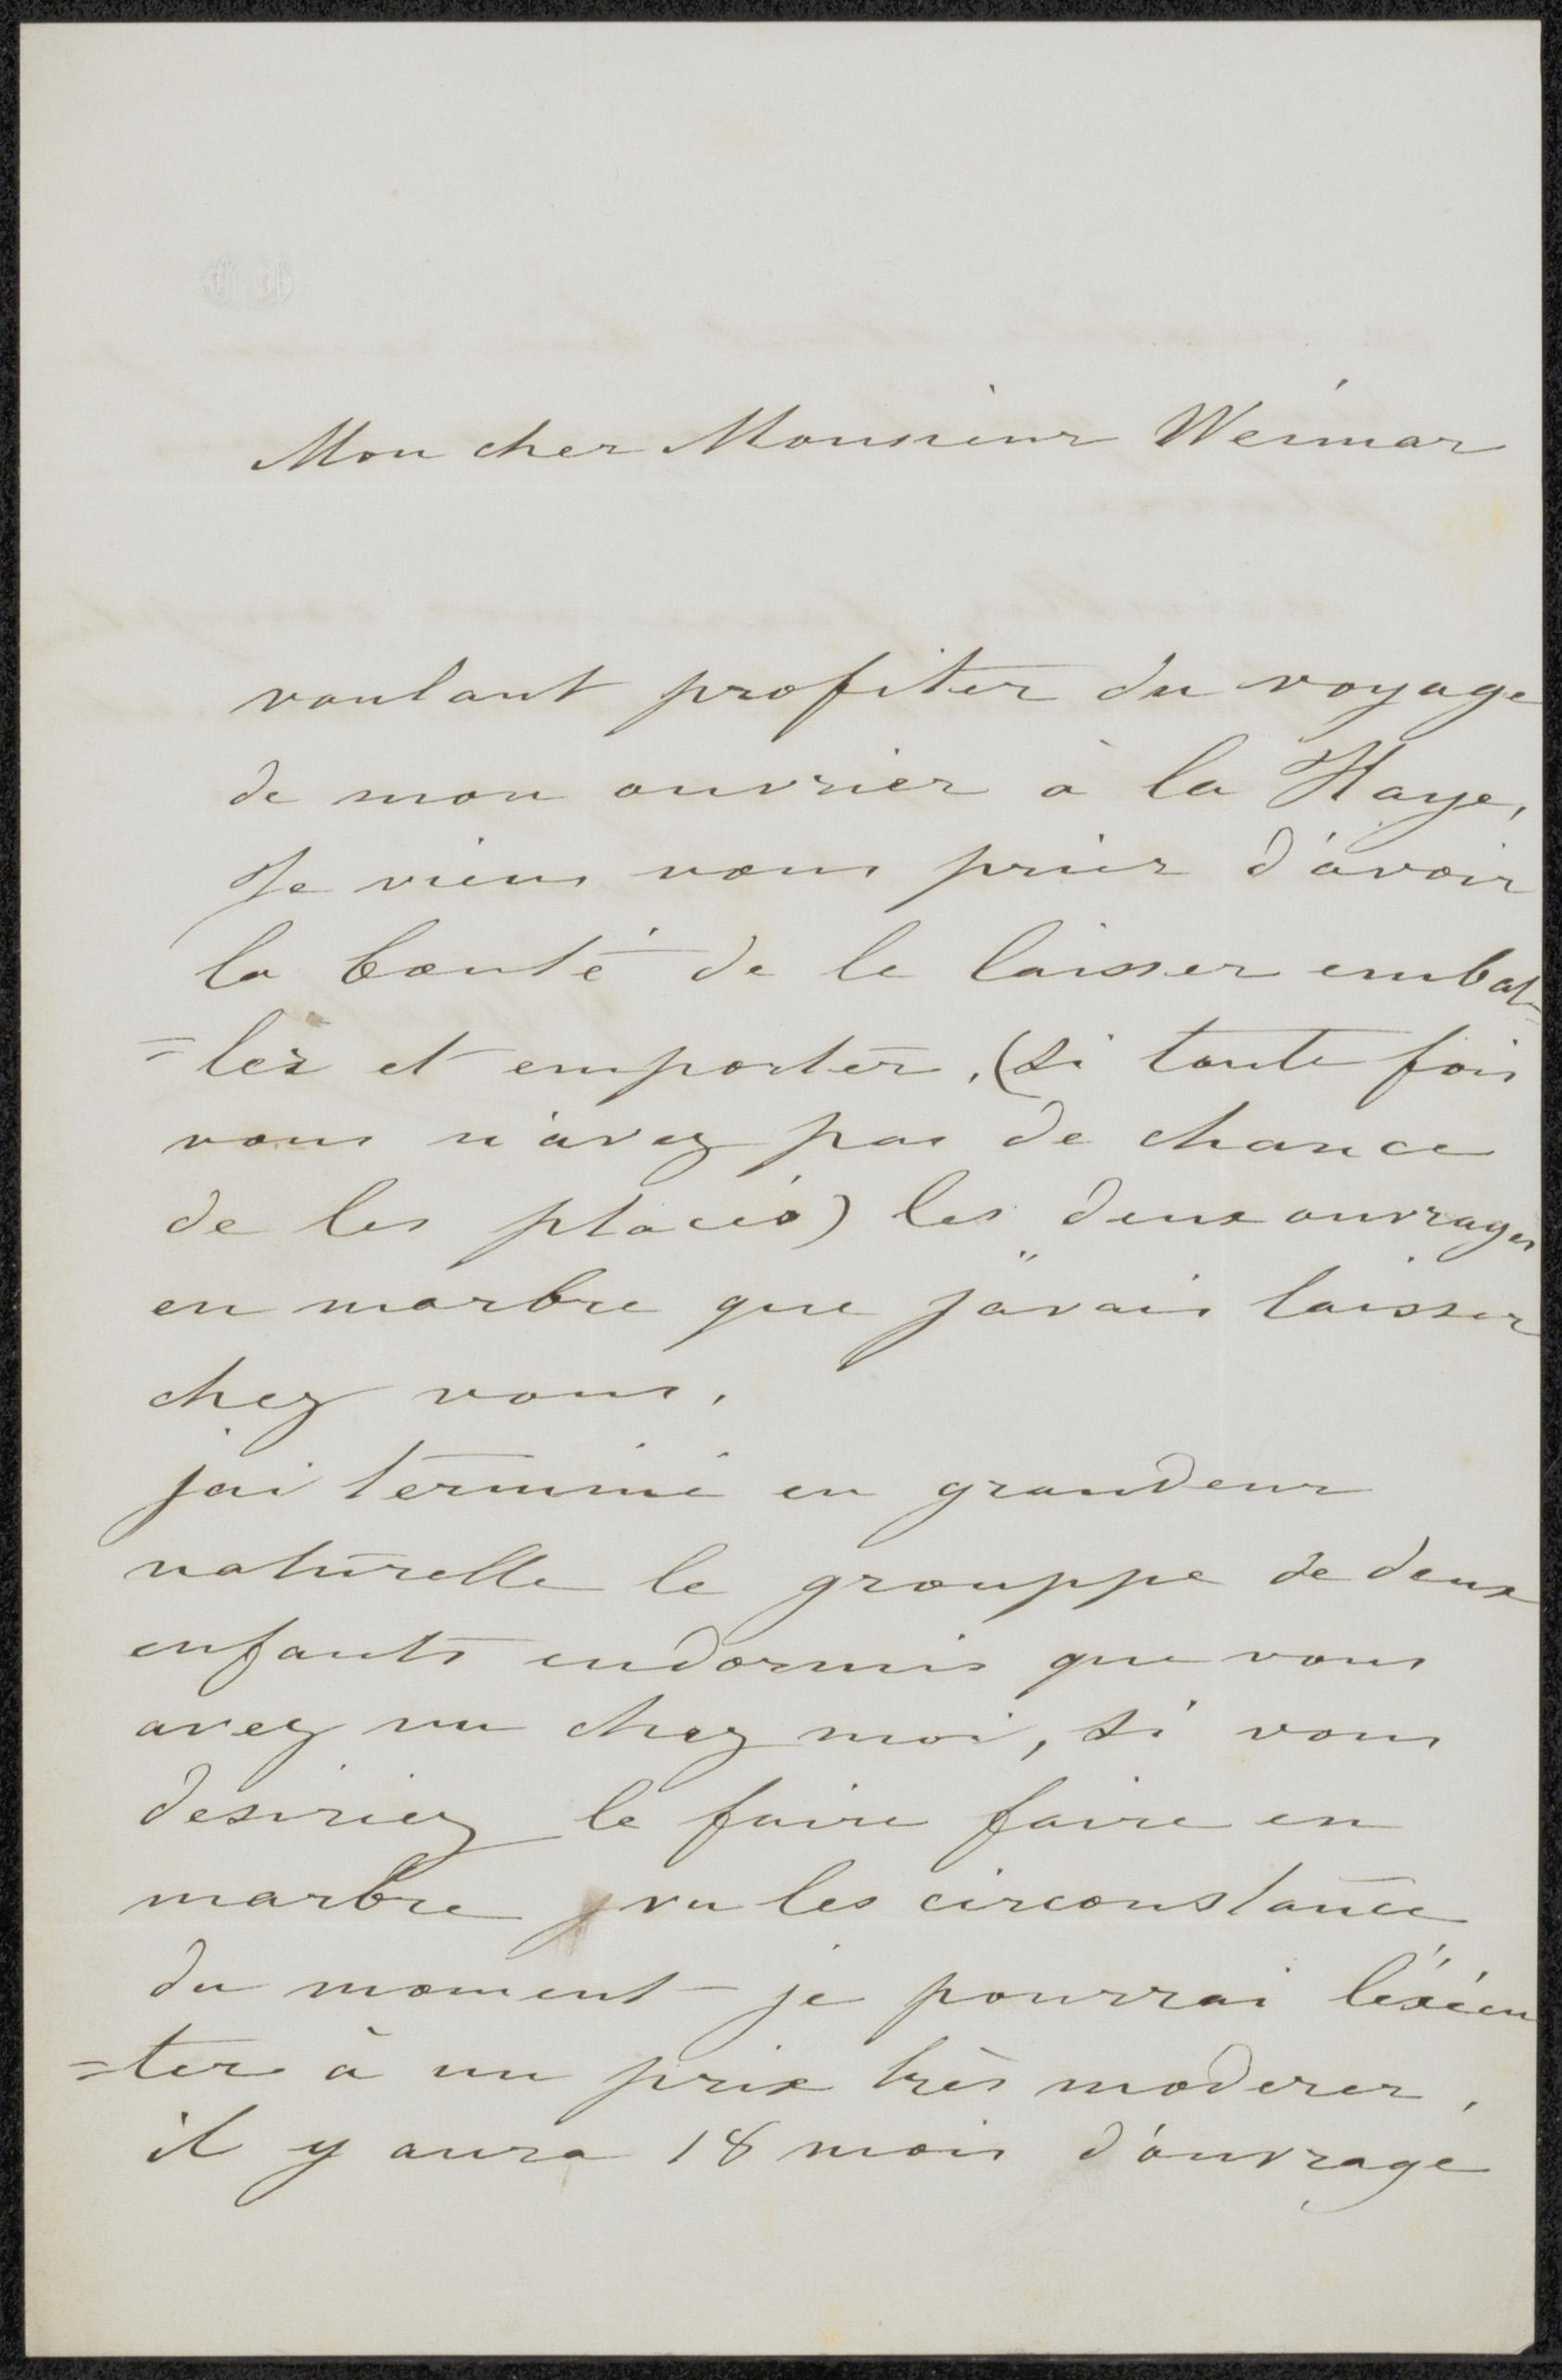 Mon cher Monsieur Weimar
voulant profiter du voyage
de mon ouvrier à la Haye,
Je viens vous prier d'avoir
la bonté de le laisser embal-
=ler et emporter, (si toute fois
vous n'avez pas de chance
de les placés) les deux ouvrages
en marbre que j'avais laisser
chez vous.
j'ai terminé en grandeur
naturelle le grouppe de deux
enfants endormis que vous
avez vu chez moi, si vous
desiriez le faire faire en
marbre, vu les circonstance
du moment je pourrai l'éxécu
=ter à un prix très moderer,
il y aura 18 mois d'ouvrage